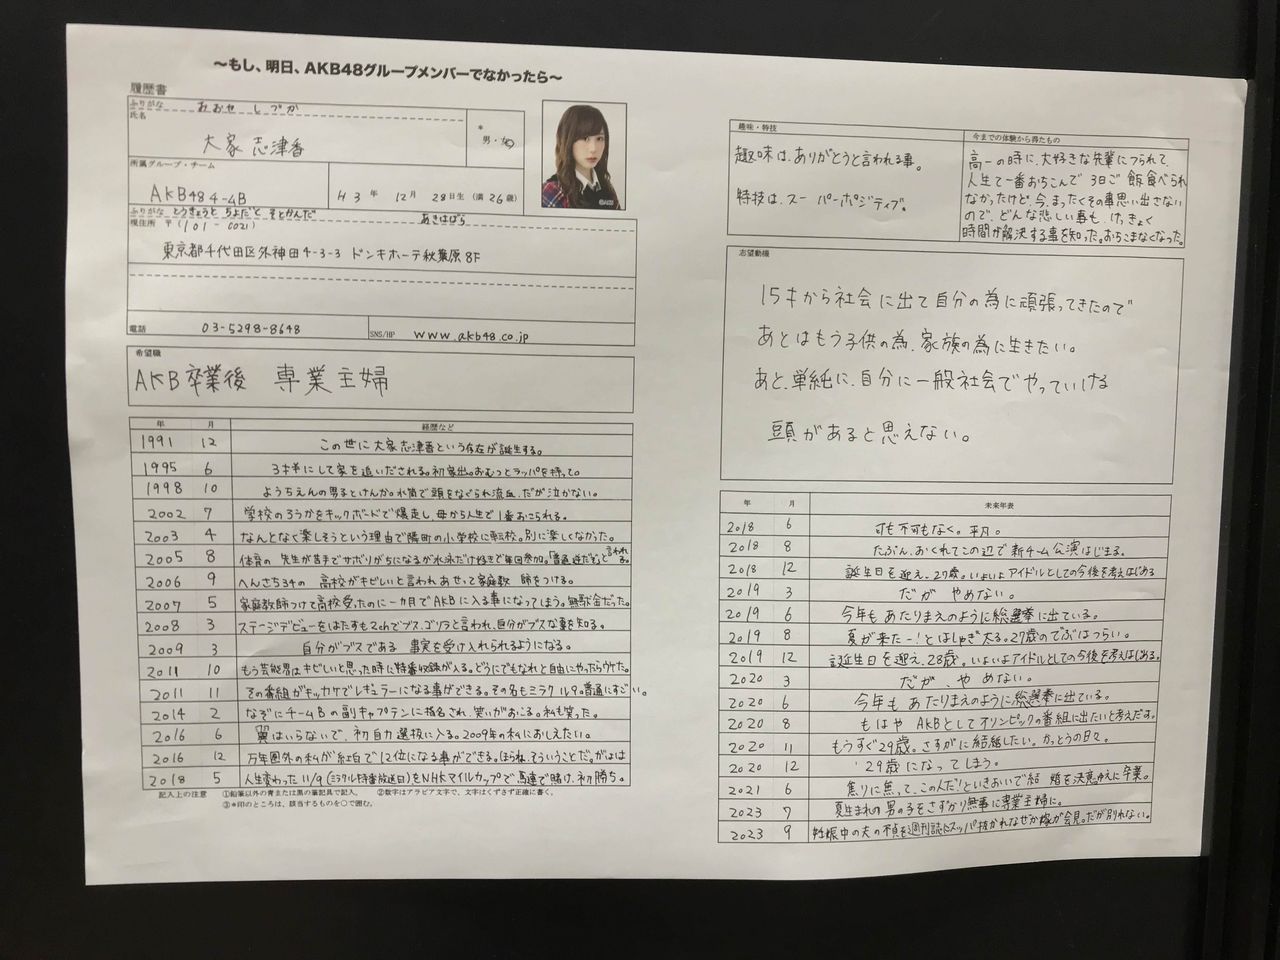 ～もし、明日、AKB48グループメンバーでなかったら～
履歴書
ふりがな おおや しづか
氏名
大家 志津香
*
男・女
所属グループ・チーム
AKB48 4-ムB
H3年 12月 28日生 (満26歳)
ふりがな とうきょうと ちよだく そとかんだ あきはばら
現住所 〒(101-0021)
東京都千代田区外神田4-3-3 ドンキホーテ秋葉原8F
電話 03-5298-8648
SNS/HP www.akb48.co.jp
希望職
AKB卒業後 専業主婦
年 月 経歴など
1991 12 この世に大家志津香という存在が誕生する。
1995 6 3才半にして家を追いだされる。初家出。おむつとラッパを持って。
1998 10 ようちえんの男子とけんか。水筒で頭をなぐられ流血、だが泣かない。
2002 7 学校のろうかをキックボードで爆走し、母から人生で1番おこられる。
2003 4 なんとなく楽しそうという理由で隣町の小学校に転校。別に楽しくなかった。
2005 8 体育の先生が苦手でサボりがちになるが水泳だけ好きで毎回参加。「普通逆だぞ」と言われる。
2006 9 へんさち34の 高校がキビしいと言われあせって家庭教師をつける。
2007 5 家庭教師つけて高校受ったのに一カ月でAKBに入る事になってしまう。無駄金だった。
2008 3 ステージデビューをはたすも2chでブス、ゴリラと言われ、自分がブスな事を知る。
2009 3 自分がブスである 事実を受け入れられるようになる。
2011 10 もう芸能界はキビしいと思った時に特番収録が入る。どうにでもなれと自由にやったらウケた。
2011 11 その番組がキッカケでレギュラーになる事ができる。その名もミラクル9。普通にすごい。
2014 2 なぞにチームBの副キャプテンに指名され、笑いがおこる。私も笑った。
2016 6 翼はいらないで、初自力選抜に入る。2009年の私におしえたい。
2016 12 万年圏外の私が紅白で12位になる事ができる。ほらね、そういうことだ。がはは
2018 5 人生変わった11/9(ミラクル特番放送日)をNHKマイルカップで馬連で賭け、初勝ち。
記入上の注意 ①鉛筆以外の青または黒の筆記具で記入。 ②数字はアラビア文字で、文字はくずさず正確に書く。
③*印のところは、該当するものを○で囲む。
趣味・特技
趣味は、ありがとうと言われる事。
特技は、スーパーポジティブ。
今までの体験から得たもの
高一の時に、大好きな先輩にフられて、
人生で一番おちこんで 3日ご飯食べられ
なかったけど、今、まったくその事思い出さない
ので、どんな悲しい事も、けっきょく
時間が解決する事を知った。おちこまなくなった。
志望動機
15才から社会に出て自分の為に頑張ってきたので
あとはもう子供の為、家族の為に生きたい。
あと、単純に、自分に一般社会でやっていける
頭があると思えない。
年 月 未来年表
2018 6 可も不可もなく。平凡。
2018 8 たぶん、おくれてこの辺で新チーム公演はじまる。
2018 12 誕生日を迎え、27歳。いよいよアイドルとしての今後を考えはじめる
2019 3 だが やめない。
2019 6 今年も あたりまえのように総選挙に出ている。
2019 8 夏が来たー!とはしゃぎ太る。27歳のでぶはつらい。
2019 12 誕生日を迎え、28歳。いよいよアイドルとしての今後を考えはじめる。
2020 3 だが、やめない。
2020 6 今年も あたりまえのように総選挙に出ている。
2020 8 もはや AKBとしてオリンピックの番組に出たいと考えだす。
2020 11 もうすぐ29歳。さすがに結婚したい。かっとうの日々。
2020 12 29歳になってしまう。
2021 6 焦りに焦って、この人だ!といきおいで結婚を決意ゆえに卒業。
2023 7 夏生まれの男の子をさずかり無事に専業主婦に。
2023 9 妊娠中の夫の不貞を週刊誌にスッパ抜かれなぜか嫁が会見。だが別れない。